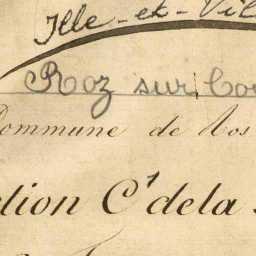 Ille-et-Vil
Roz sur Cou
Commune de Ros
ction C¹ de la